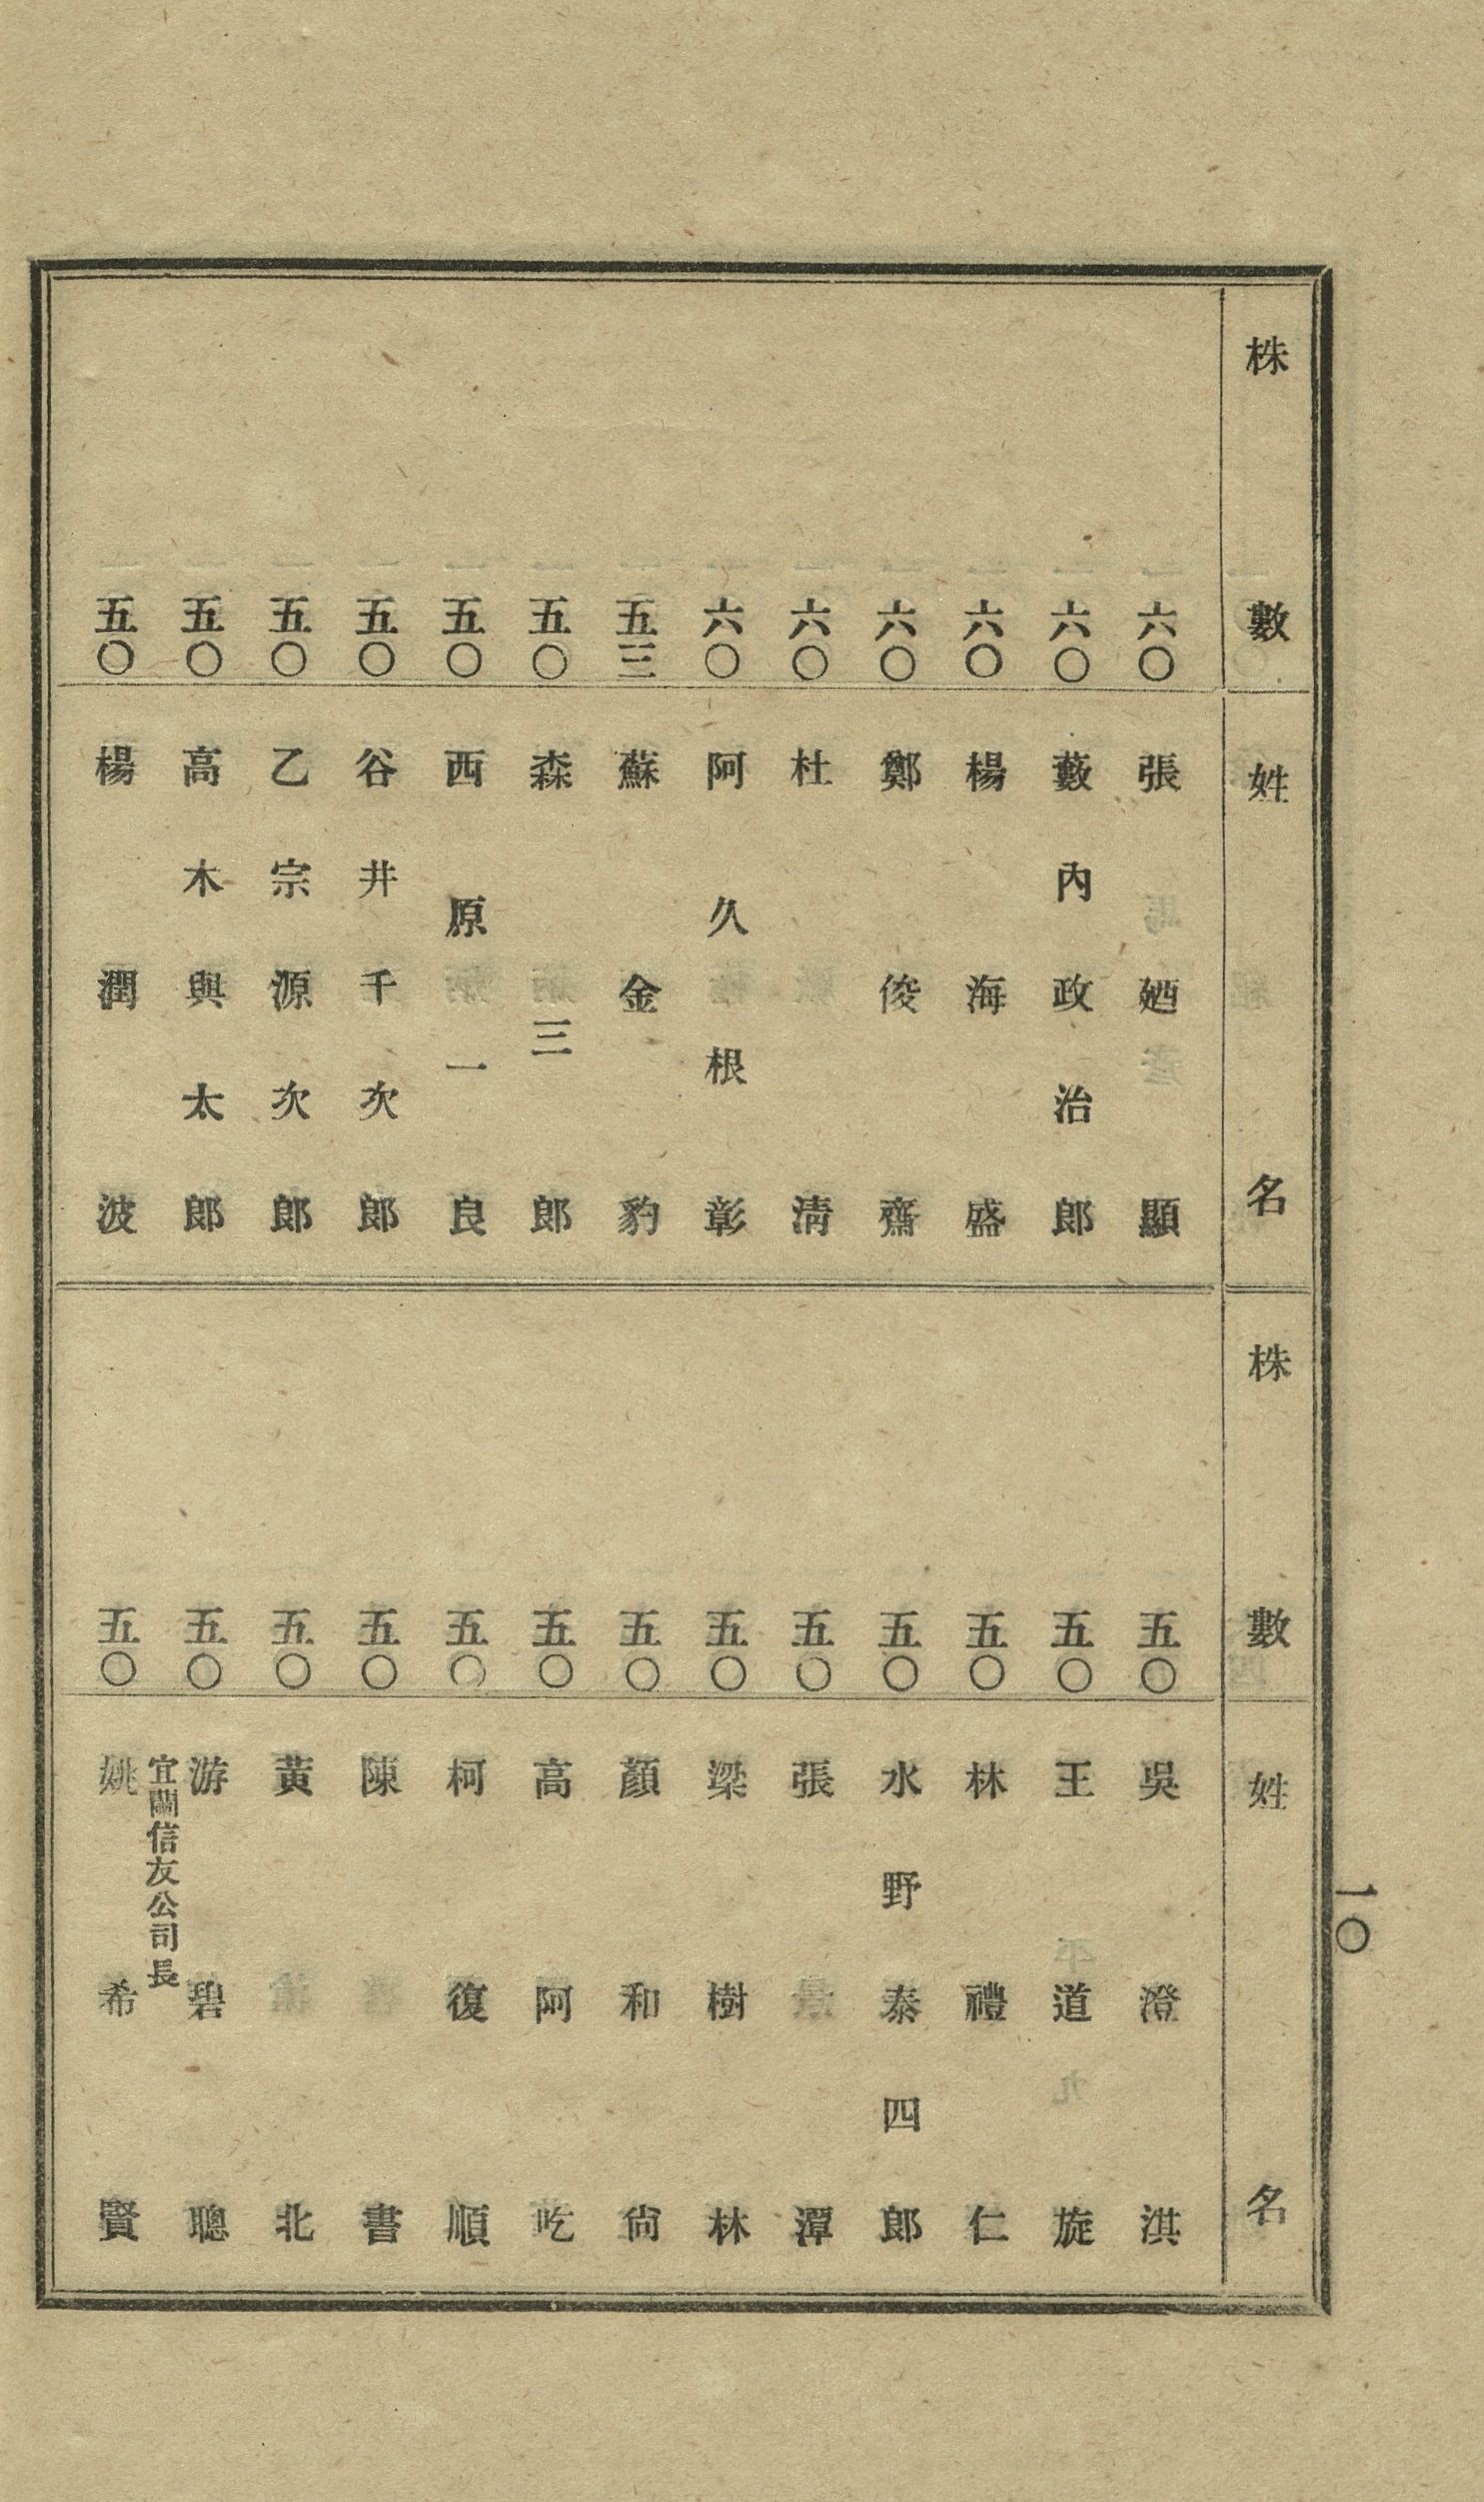 株數 姓名
六〇 張廼顯
六〇 藪內政治郎
六〇 楊海盛
六〇 鄭俊齋
六〇 杜清
六〇 阿久根彰
五三 蘇金豹
五〇 森三郎
五〇 西原一良
五〇 谷井千次郎
五〇 乙宗源次郎
五〇 高木與太郎
五〇 楊潤波
株數 姓名
五〇 吳澄淇
五〇 王道旋
五〇 林禮仁
五〇 水野泰四郎
五〇 張潭
五〇 梁樹林
五〇 顏和尙
五〇 高阿屹
五〇 柯復順
五〇 陳書
五〇 黃北
五〇 游碧聰
宜蘭信友公司長
五〇 姚希賢
一〇